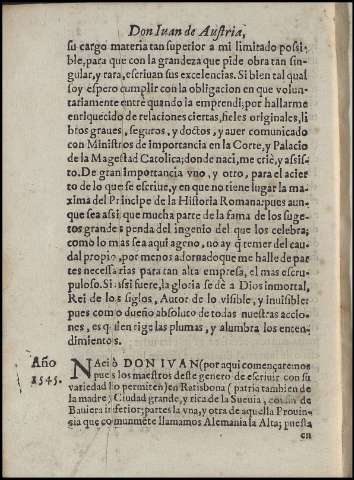 Don Iuan de Austria,
su cargo materia tan superior a mi limitado possi-
ble, para que con la grandeza que pide obra tan sin-
gular, y rara, escriuan sus excelencias. Si bien tal qual
soy espero cumplir con la obligacion en que volun-
tariamente entrè quando la emprendi; por hallarme
enriquecido de relaciones ciertas, fieles originales, li
bros graues, seguros, y doctos, y auer comunicado
con Ministros de importancia en la Corte, y Palacio
de la Magestad Catolica; donde naci, me criè, y assis-
to. De gran importancia vno, y otro, para el acier
to de lo que se escriue, y en que no tiene lugar la ma-
xima del Principe de la Historia Romana: pues aun-
que sea assi que mucha parte de la fama de los suge-
tos grandes penda del ingenio del que los celebra;
como lo mas sea aqui ageno, no ay q̃ temer del cau-
dal propio, por menos adornado que me halle de par-
tes necessarias para tan alta empresa, el mas escru-
puloso. Si assi fuere, la gloria se dè a Dios inmortal,
Rei de los siglos, Autor de lo visible, y inuisible:
pues como dueño absoluto de todas nuestras accio-
nes, es quien rige las plumas, y alumbra los enten-
dimientos.
Año
1545.
NAciò DON IVAN (por aqui començaremos
pues los maestros deste genero de escriuir con su
variedad lo permiten) en Ratisbona (patria tambien de
la madre) Ciudad grande, y rica de la Sueuia, confin de
Bauiera inferior; partes la vna, y otra de aquella Prouin-
cia que comunmẽte llamamos Alemania la Alta; puesta
en